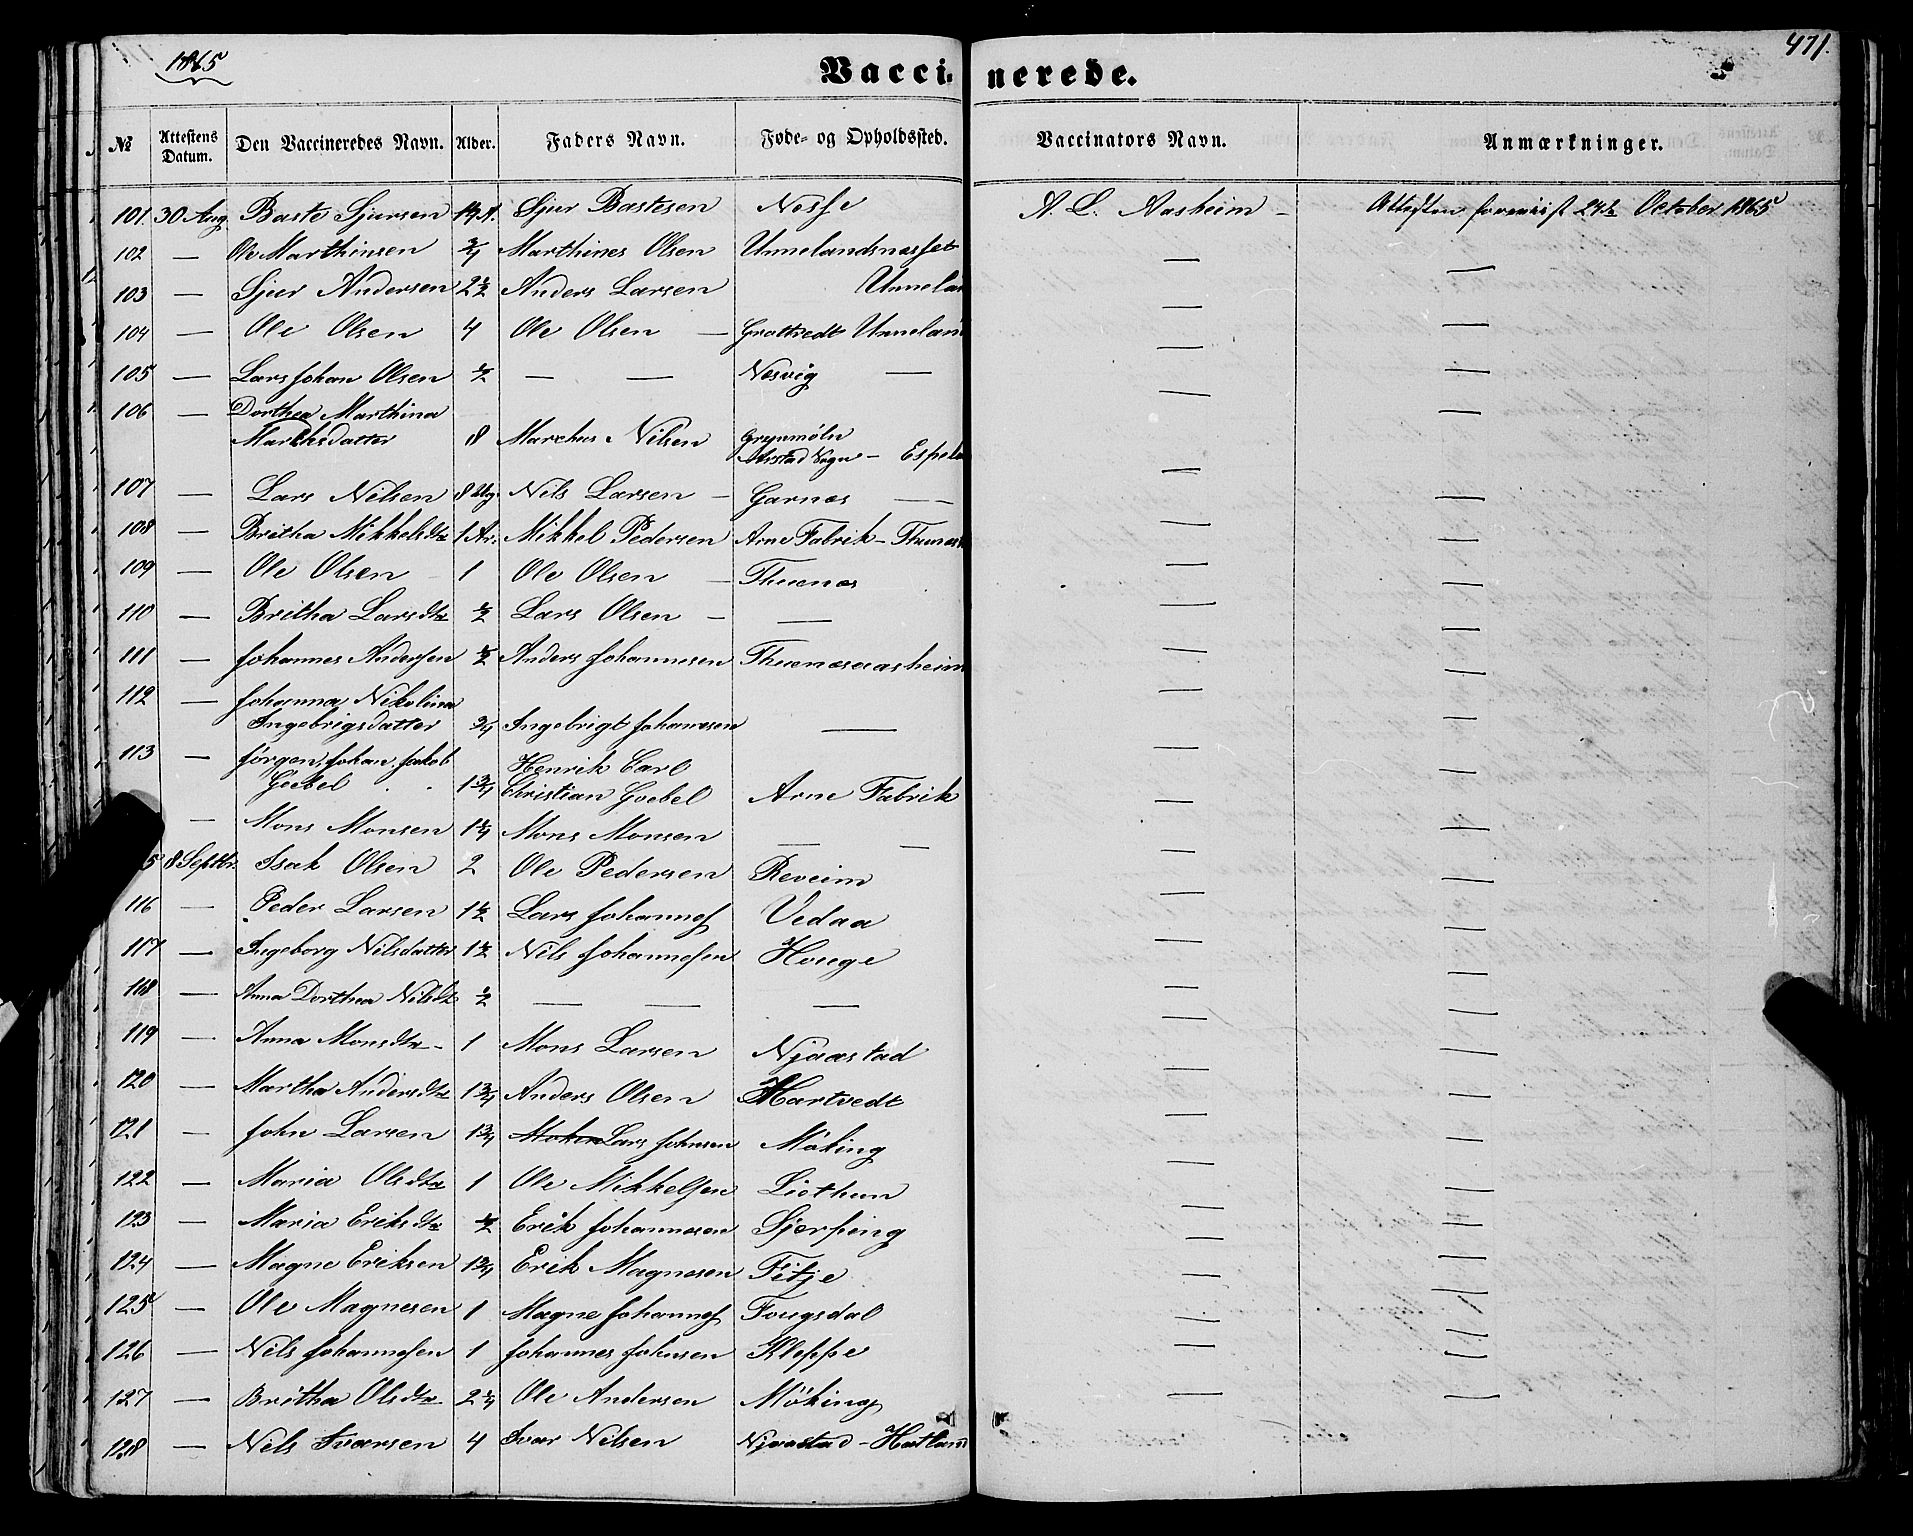 1865
471.
Vaccinerede.
№ Attestens Datum. Den Vaccineredes Navn. Alder. Faders Navn. Føde- og Opholdssted. Vaccinators Navn. Anmærkninger.
101. 30 Aug. Baste Sjursen Sjur Bastesen Nesse A. L. Aasheim - Attesten foreviist 24de October 1865
102 — Ole Marthinsen 3/4 Marthines Olsen Unnelandsnesset — —
103 — Sjur Andersen 2 1/2 Anders Larsen Unnelan — —
104 — Ole Olsen 4 Ole Olsen — Grottvedt Unnelan — —
105 — Lars Johan Olsen 1/2 — — Nesvig — — —
106 — Dorthea Marthina
Marchsdatter 8 Marchus Nilsen Grynmøln
Arstad Sogn - Espela — —
107 — Lars Nilsen 8 Ug. Nils Larsen — Garnæs — — —
108 — Britha Mikkelsdtr 1 Ar. Mikkel Pedersen Arne Fabrik - Thunæs — —
109 — Ole Olsen 1 Ole Olsen — Thuenæs — —
110 — Britha Larsdtr 1/2 Lars Olsen — — — —
111 — Johannes Andersen 1/2 Anders Johannesen Thuenæsaasheim — —
112 — Johanna Nikolina
Ingebrigsdatter 3/4 Ingebrigt Johannesen — — —
113 — Jørgen, Johan, Jakob Henrik Carl
Goebel 1 3/4 Christian Goebel Arne Fabrik — —
— Mons Monsen 1 1/4 Mons Monsen — — — —
5 8 Septbr. Isak Olsen 2 Ole Pedersen Reveim — —
116 — Peder Larsen 1 1/2 Lars Johannes Vedaa — —
117 — Ingeborg Nilsdatter 1 1/2 Nils Johannesen Houge — —
118 — Anna Dorthea Nilsdt 1/2 — — — — —
119 — Anna Monsdtr - 1 Mons Larsen Njaastad — —
120 — Martha Andersdtr 1 3/4 Anders Olsen Hartvedt — —
121 — John Larsen 1 3/4 Lars Johnsen Möking — —
122 — Maria Olsdtr 1 Ole Mikkelsen Liethun — —
123 — Maria Eriksdtr 1/2 Erik Johannesen Sjerping — —
124 — Magne Eriksen 1 3/4 Erik Magnesen Fitje — —
125 — Ole Magnesen 1 Magne Johannes Fougsdal — —
126 — Nils Johannesen 1 Johannes Johnsen Kleppe — —
127 — Britha Olsdtr 2 1/4 Ole Andersen Möking — —
128 — Nils Ivarsen 4 Ivar Nilsen Njaastad - Hatland